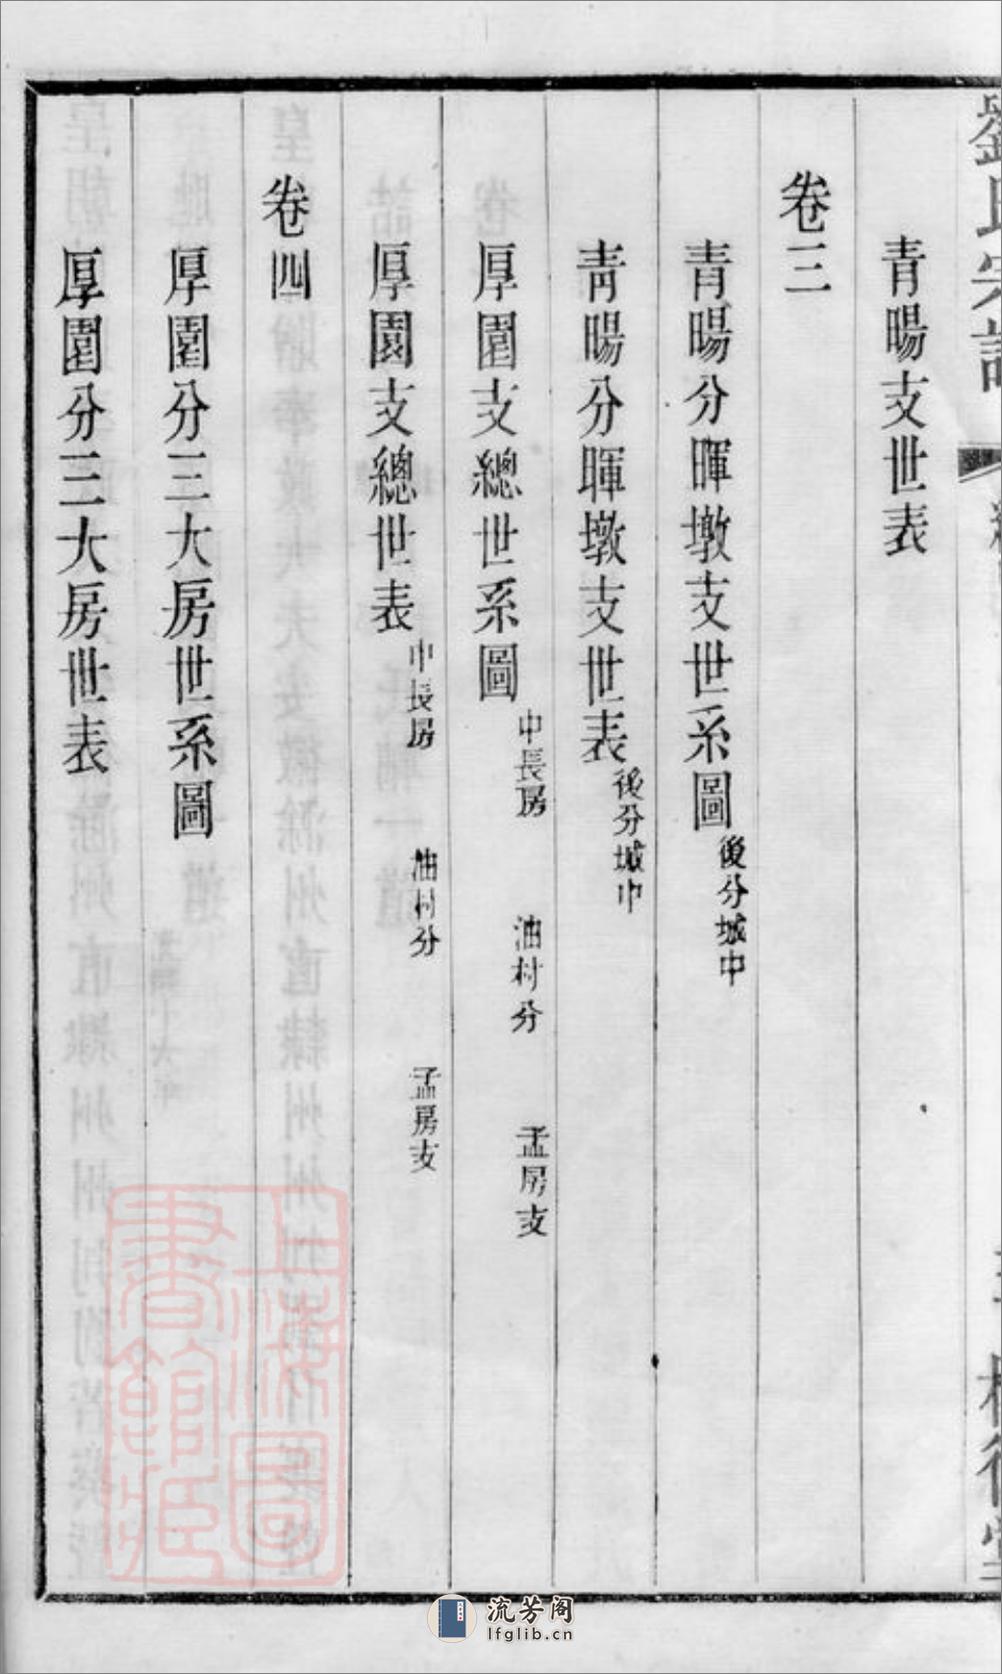 劉氏宗譜
青暘支世表
卷三
青暘分暉墩支世系圖 後分城中
青暘分暉墩支世表 後分城中
厚園支總世系圖 中長房 油村分 孟房支
厚園支總世表 中長房 油村分 孟房支
卷四
厚園分三大房世系圖
厚園分三大房世表
上海圖書館藏
流芳阁
lfglib.cn